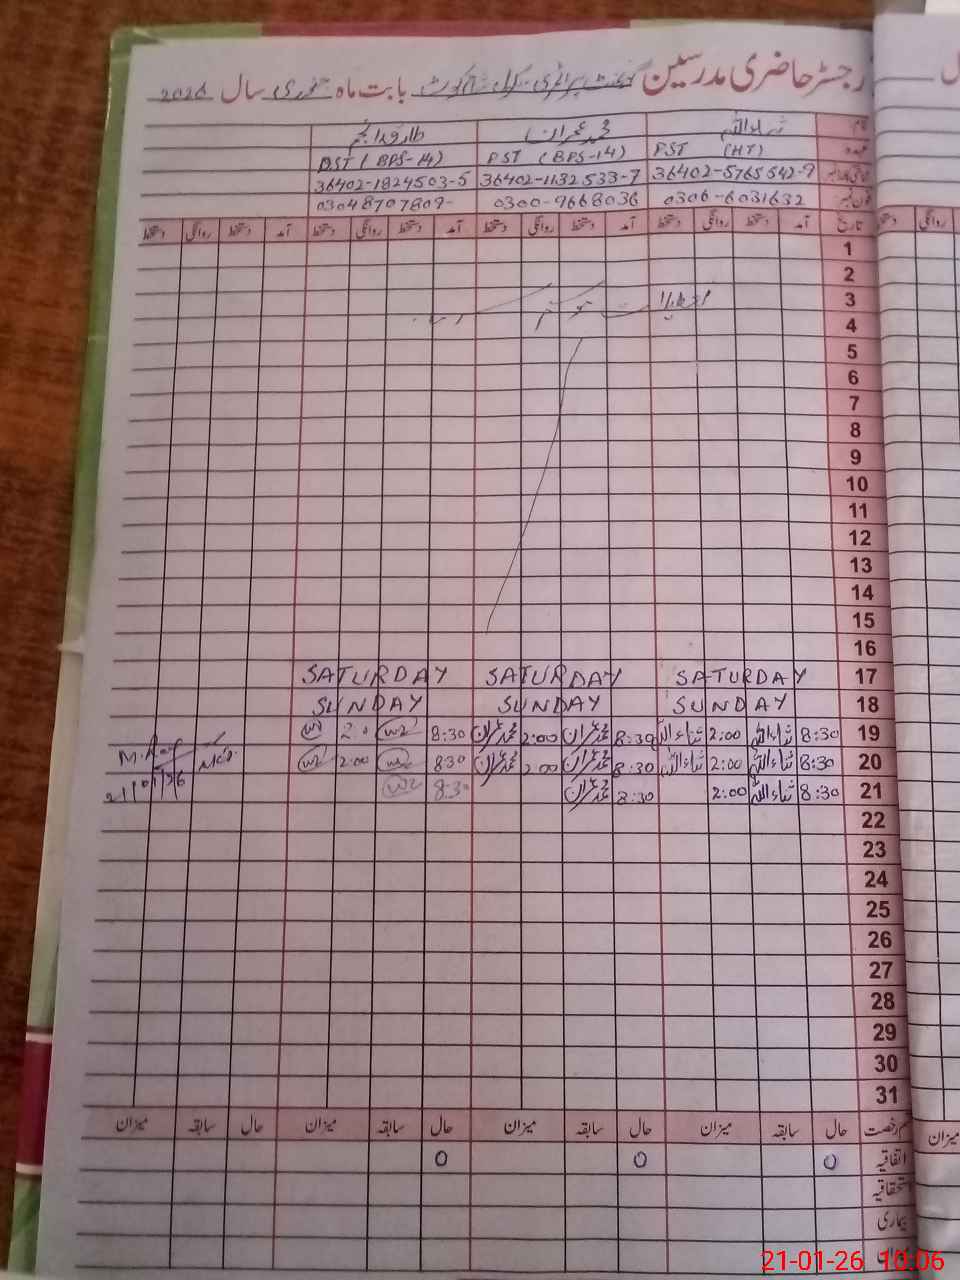 رجسٹر حاضری مدرسین گورنمنٹ پرائمری سکول کوٹ بابت ماہ جنوری سال 2026
نام ثناءاللہ محمد عمران طارق انجم
عہدہ PST (HT) PST (BPS-14) PST (BPS-14)
36402-5765542-9 36402-1132533-7 36402-1824503-5
فون نمبر 0306-6031632 0300-9668036 03048707809-
تاریخ آمد دستخط روانگی دستخط آمد دستخط روانگی دستخط آمد دستخط روانگی دستخط آمد دستخط روانگی دستخط
1
2
3
4
5
6
7
8
9
10
11
12
13
14
15
16
17 SATURDAY SATURDAY SATURDAY
18 SUNDAY SUNDAY SUNDAY
19 8:30 ثناءاللہ 2:00 ثناءاللہ 8:30 محمد عمران 2:00 محمد عمران 8:30
20 8:30 ثناءاللہ 2:00 ثناءاللہ 8:30 محمد عمران 2:00 محمد عمران 8:30 2:00
21 8:30 ثناءاللہ 2:00 8:30 محمد عمران 8:30
21/01/26
22
23
24
25
26
27
28
29
30
31
قسم رخصت حال سابقہ میزان حال سابقہ میزان حال سابقہ میزان حال سابقہ میزان
اتفاقیہ 0 0 0
استحقاقیہ
بیماری
21-01-26 10:06